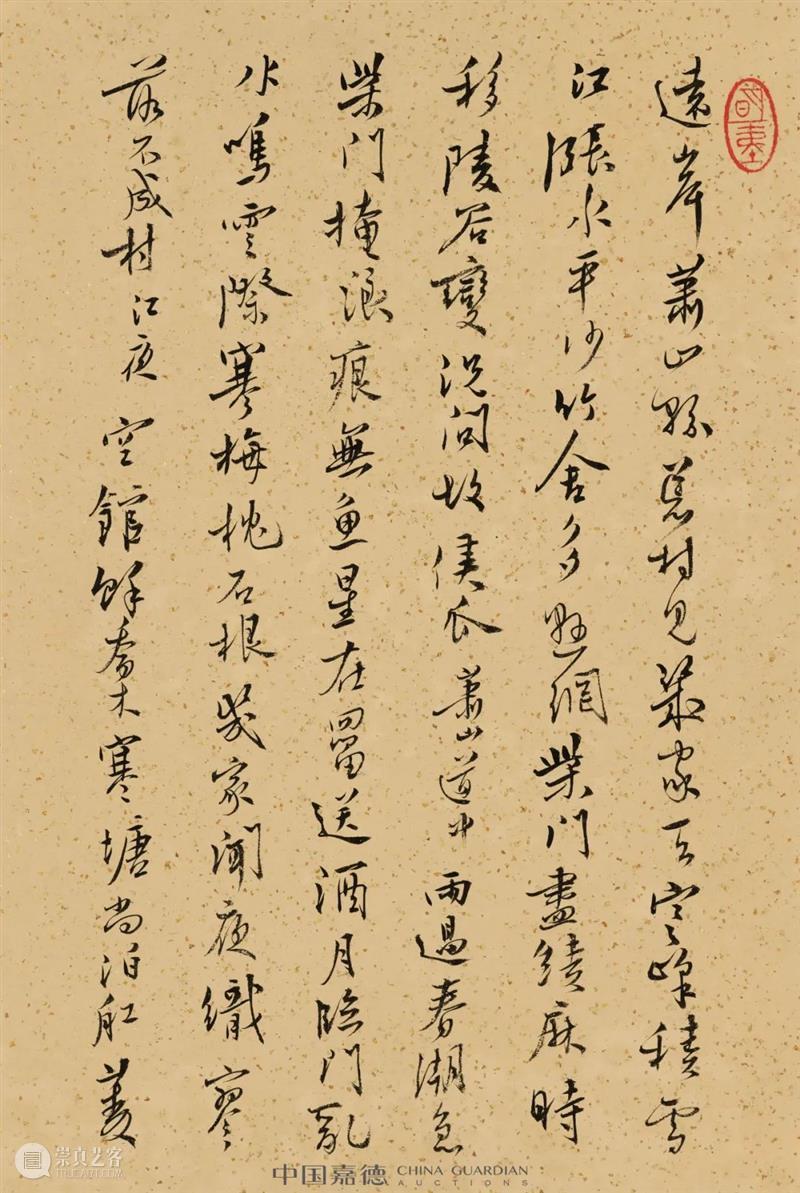 遠岸蕭山縣荒村見幾家天寒峰積雪
江漲水平沙竹舍多懸網柴門盡績麻時
移陵谷變況問故侯瓜 蕭山道中 雨過春潮急
柴門掩浪痕無魚星在罶送酒月臨門亂
水鳴雲際寒梅枕石根幾家聞夜織寥
落不成村 江夜 空館餘喬木寒塘尚泊舡菱
中国嘉德 CHINA GUARDIAN
AUCTIONS
崇真艺客